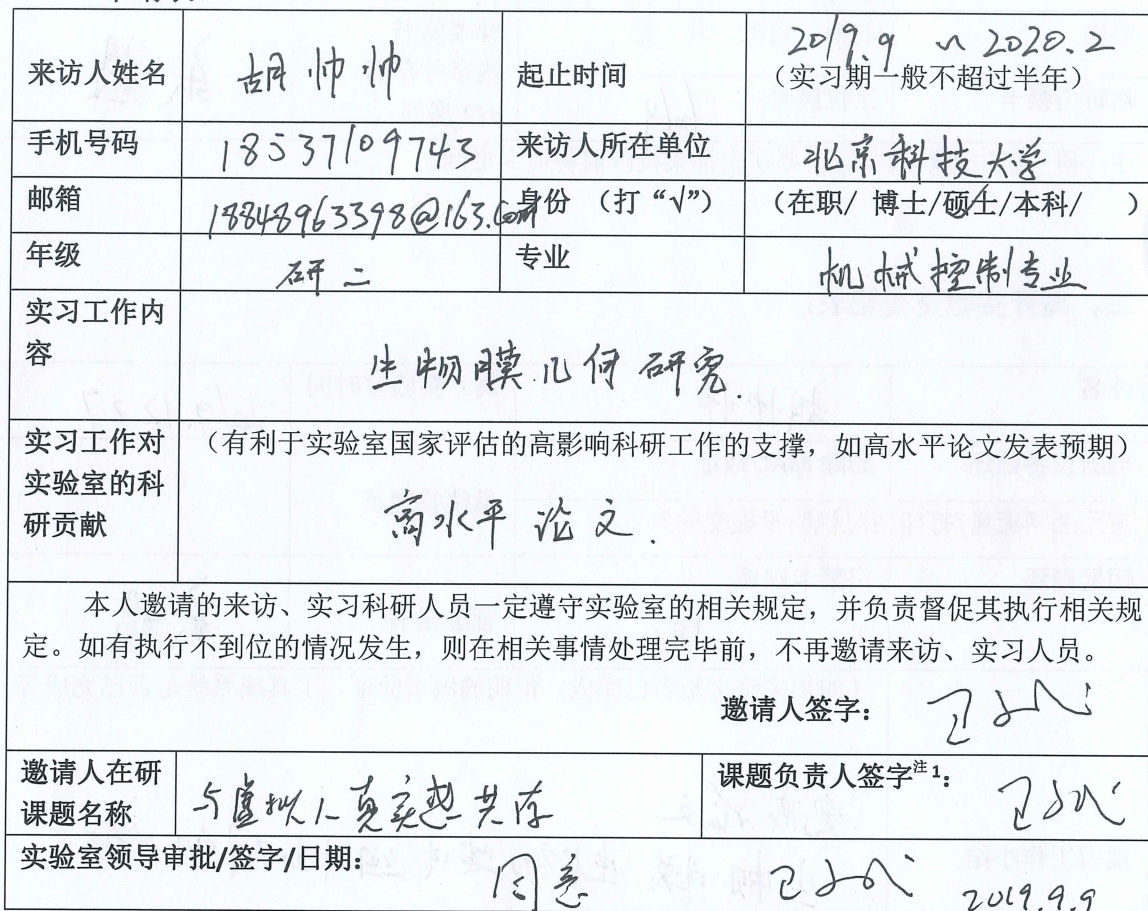 来访人姓名 胡帅帅 起止时间 2019.9 ~ 2020.2
（实习期一般不超过半年）
手机号码 18537109743 来访人所在单位 北京科技大学
邮箱 18848963398@163.com 身份 （打“√”） （在职/ 博士/硕士/本科/ ）
年级 研二 专业 机械控制专业
实习工作内
容
生物膜几何研究.
实习工作对
实验室的科
研贡献
（有利于实验室国家评估的高影响科研工作的支撑，如高水平论文发表预期）
高水平论文.
本人邀请的来访、实习科研人员一定遵守实验室的相关规定，并负责督促其执行相关规
定。如有执行不到位的情况发生，则在相关事情处理完毕前，不再邀请来访、实习人员。
邀请人签字：
邀请人在研
课题名称
与虚拟人真实感共存
课题负责人签字注1：
实验室领导审批/签字/日期： 同意 2019.9.9